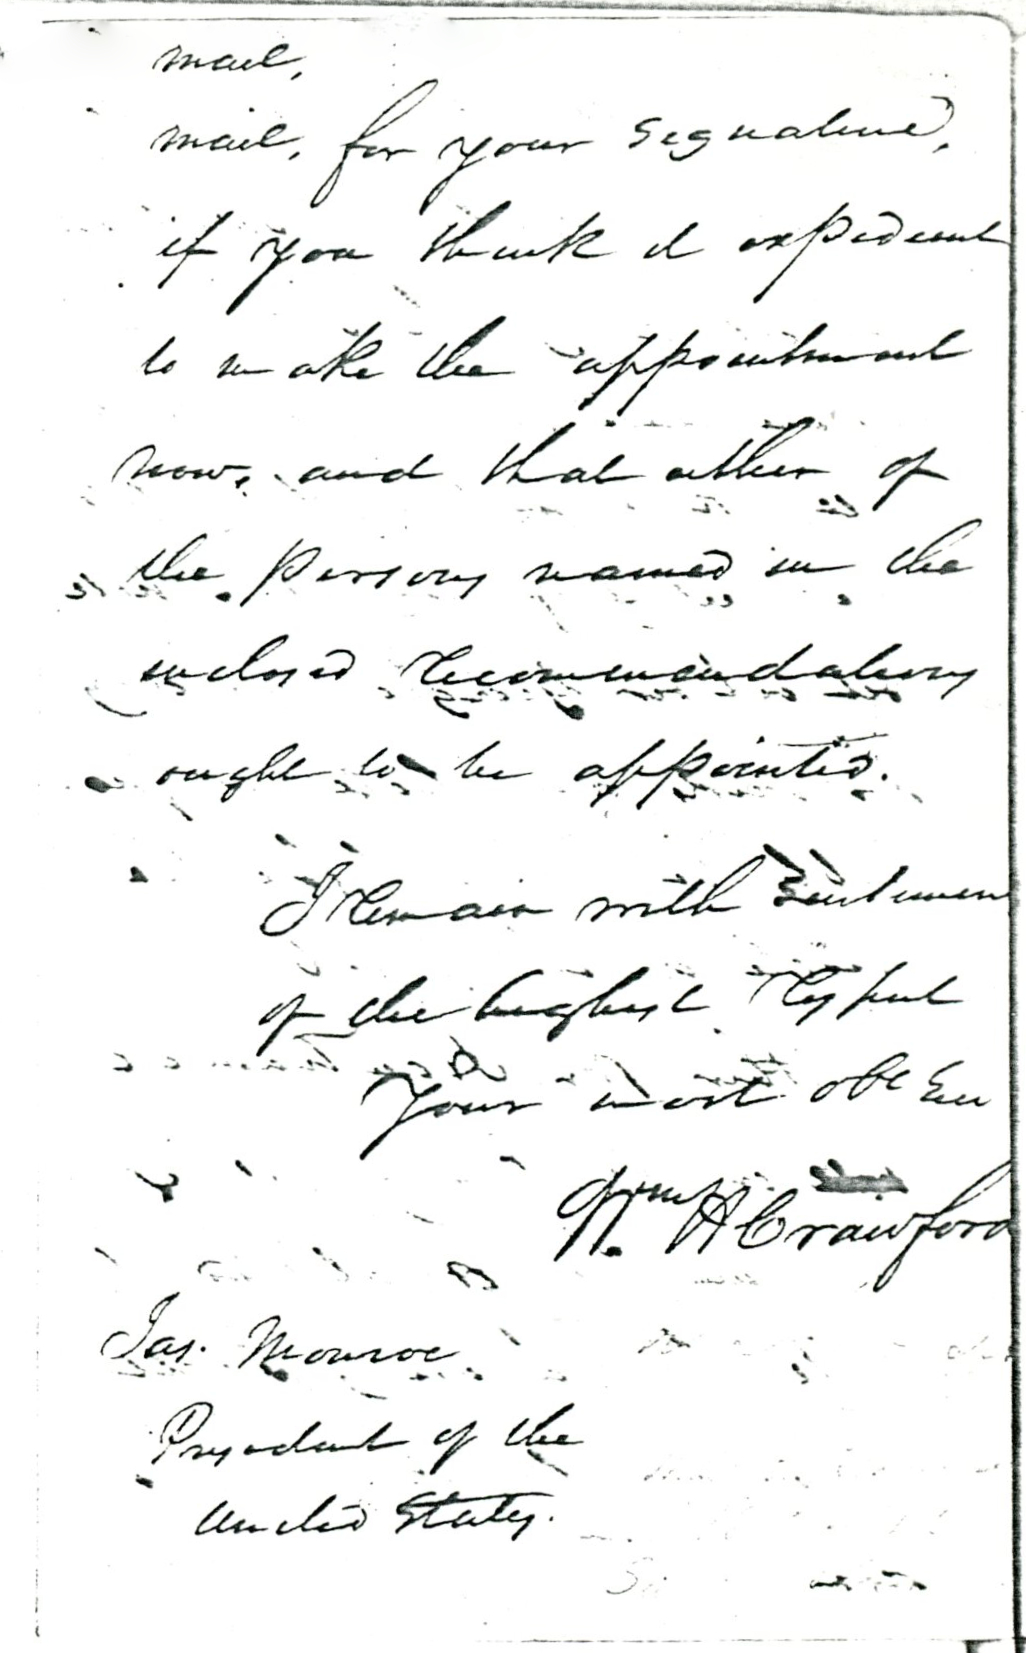 mail,
mail, for your signature,
if you think it expedient
to make the appointment
now, and that either of
the persons named in the
enclosed recommendations
ought to be appointed.
I remain with Sentimen
of the highest respect
Your most obt Ser
Wm H Crawford
Jas. Monroe
President of the
United States.